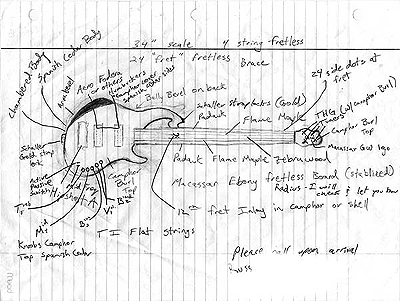 34" scale 4 string fretless
24 "fret" fretless
Brace
Chambered Body
Spanish Cedar Body
Arm bevel
Aero Fodera
humbuckers
Camphor cover
Spanish cedar sides
Belly Bevel on back
24 side dots at
fret
Schaller Straplocks (Gold)
Padauk Flame Maple
+ others
THG
Tuners (w/ camphor Burl)
Camphor Burl
Top
Macassar Gold logo
Schaller
Gold strap
lock
Active
Passive
Switch
Camphor
Burl
Top
Padauk Flame Maple Zebrawood
Macassar Ebony fretless Board (stabilized)
Radius - I will
check & let you know
12th fret Inlay in camphor or shell
Mids
Vol
Knobs Camphor
Top Spanish Cedar
TI Flat strings
Please call upon arrival